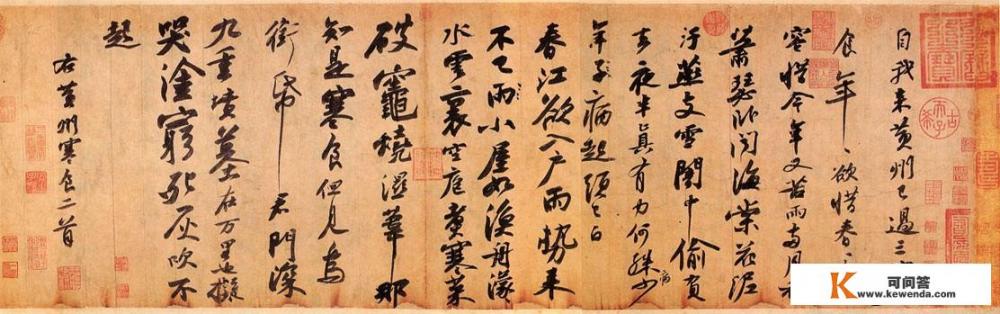 自我来黄州已過三
食年々欲惜春
容惜今年又苦雨兩月
蕭瑟卧聞海棠花泥
汙燕支雪闇中偷負
去夜半真有力何殊少
年子病起須已白
春江欲入户雨勢来
不已雨小屋如漁舟濛々
水雲裏空庖煮寒菜
破竈燒濕葦那
知是寒食但見烏
銜帋君門深
九重墳墓在万里也擬
哭塗窮死灰吹不
起
右黄州寒食二首
K 可问答
www.kewenda.com